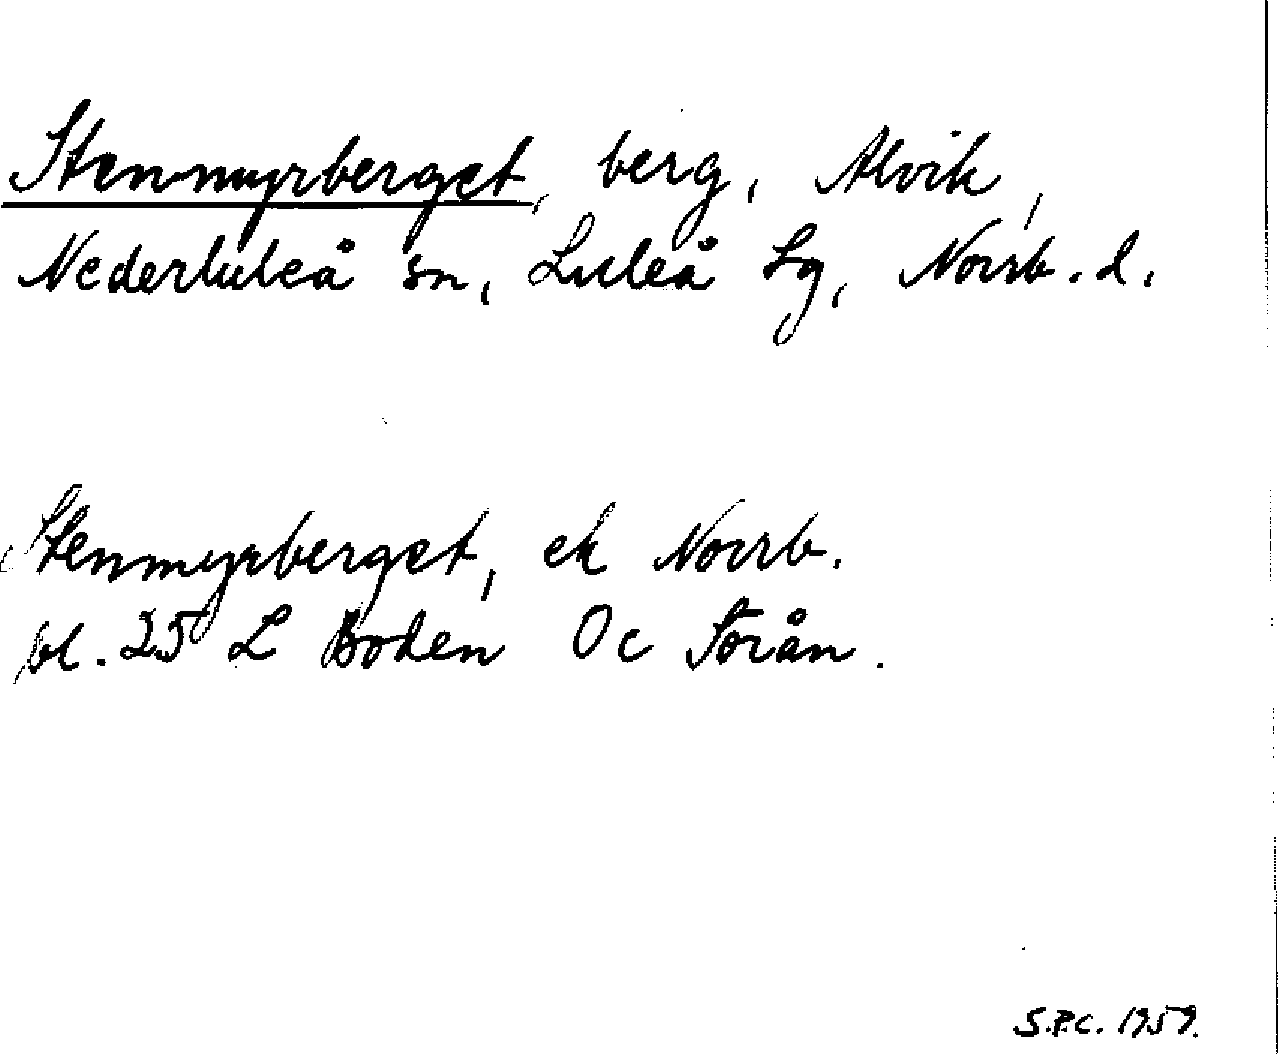 Stenmyrberget, berg, Alvik,
Nederluleå sn, Luleå Lg, Norrb. l.
Stenmyrberget, ek Norrb.
bl. 25 L Boden Oc Torån.
S.P.C. 1959.